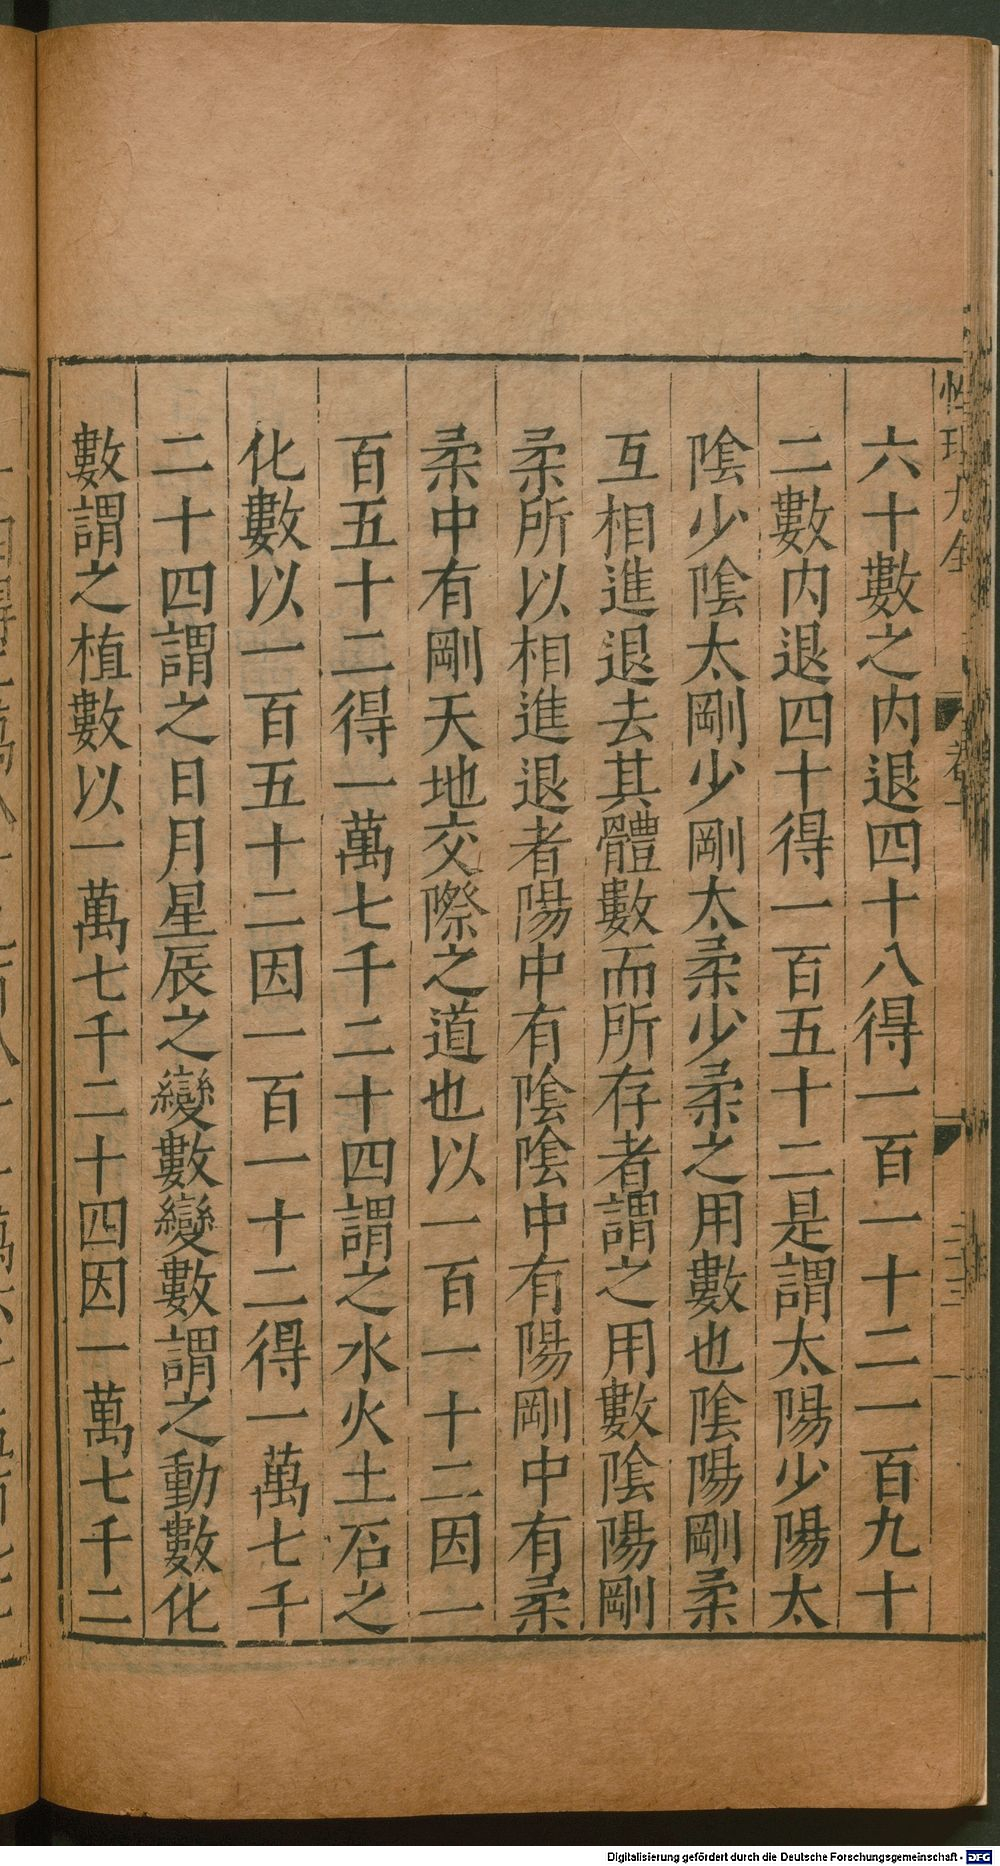 六十數之内退四十八得一百一十二一百九十
二數内退四十得一百五十二是謂太陽少陽太
陰少陰太剛少剛太柔少柔之用數也陰陽剛柔
互相進退去其體數而所存者謂之用數陰陽剛
柔所以相進退者陽中有陰陰中有陽剛中有柔
柔中有剛天地交際之道也以一百一十二因一
百五十二得一萬七千二十四謂之水火土石之
化數以一百五十二因一百一十二得一萬七千
二十四謂之日月星辰之變數變數謂之動數化
數謂之植數以一萬七千二十四因一萬七千二
Digitalisierung gefördert durch die Deutsche Forschungsgemeinschaft - DFG